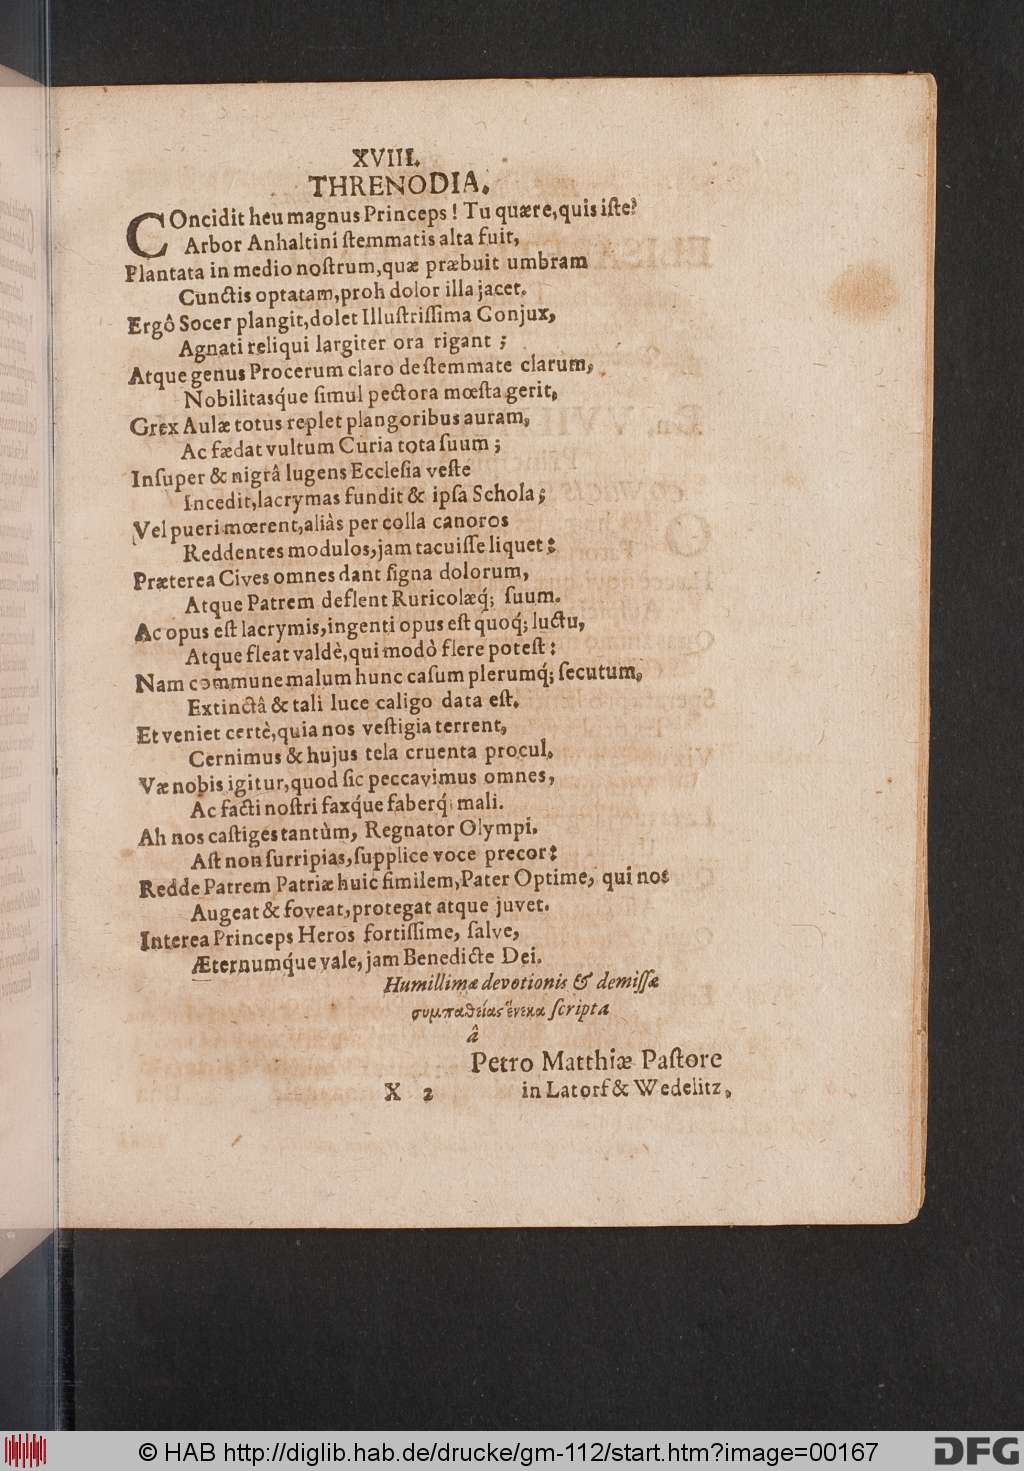 XVIII.
THRENODIA.
COncidit heu magnus Princeps! Tu quære, quis iſte?
Arbor Anhaltini ſtemmatis alta fuit,
Plantata in medio noſtrum, quæ præbuit umbram
Cunctis optatam, proh dolor illa jacet.
Ergô Socer plangit, dolet Illuſtriſſima Conjux,
Agnati reliqui largiter ora rigant;
Atque genus Procerum claro de ſtemmate clarum,
Nobilitasq́ue ſimul pectora mœſta gerit,
Grex Aulæ totus replet plangoribus auram,
Ac fædat vultum Curia tota ſuum;
Inſuper & nigrâ lugens Eccleſia veſte
Incedit, lacrymas fundit & ipſa Schola;
Vel pueri mœrent, aliàs per colla canoros
Reddentes modulos, jam tacuiſſe liquet:
Præterea Cives omnes dant ſigna dolorum,
Atque Patrem deflent Ruricolæq́; ſuum.
Ac opus eſt lacrymis, ingenti opus eſt quoq́; luctu,
Atque fleat valdè, qui modò flere poteſt:
Nam commune malum hunc caſum plerumq́; ſecutum,
Extinctâ & tali luce caligo data eſt.
Et veniet certè, quia nos veſtigia terrent,
Cernimus & hujus tela cruenta procul.
Væ nobis igitur, quod ſic peccavimus omnes,
Ac facti noſtri faxq́ue faberq́; mali.
Ah nos caſtiges tantùm, Regnator Olympi,
Aſt non ſurripias, ſupplice voce precor:
Redde Patrem Patriæ huic ſimilem, Pater Optime, qui nos
Augeat & foveat, protegat atque juvet.
Interea Princeps Heros fortiſſime, ſalve,
Æternumq́ue vale, jam Benedicte Dei.
Humillimæ devotionis & demiſſæ
συμπαθείας ἕνεκα ſcripta
â
Petro Matthiæ Paſtore
in Latorf & Wedelitz,
X 2
© HAB http://diglib.hab.de/drucke/gm-112/start.htm?image=00167
DFG